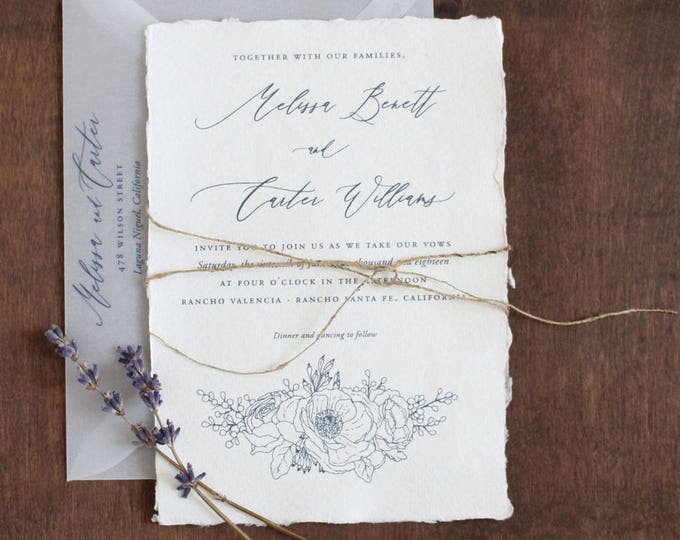 TOGETHER WITH OUR FAMILIES,
Melissa Benett
and
Carter Williams
INVITE YOU TO JOIN US AS WE TAKE OUR VOWS
Saturday, the sixteenth of thousand and eighteen
AT FOUR O'CLOCK IN THE AFTERNOON
RANCHO VALENCIA · RANCHO SANTA FE, CALIFORNIA
Dinner and dancing to follow
Melissa and Carter
478 WILSON STREET
Laguna Niguel, California